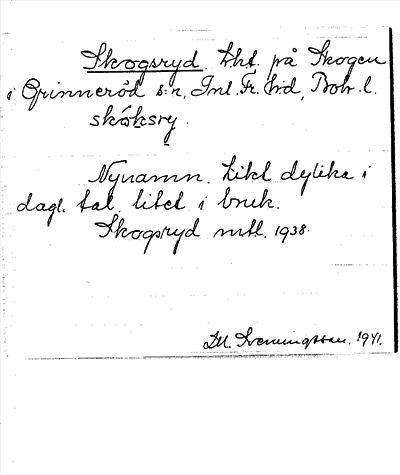 Skogsryd. Lht. på Skogen
i Grinneröd s:n, Inl. Fr. hd, Boh. l.
skóksry.
Nynamn. Likt dylika i
dagl. tal litet i bruk.
Skogsryd mtl. 1938.
M. Svenningsson. 1941.